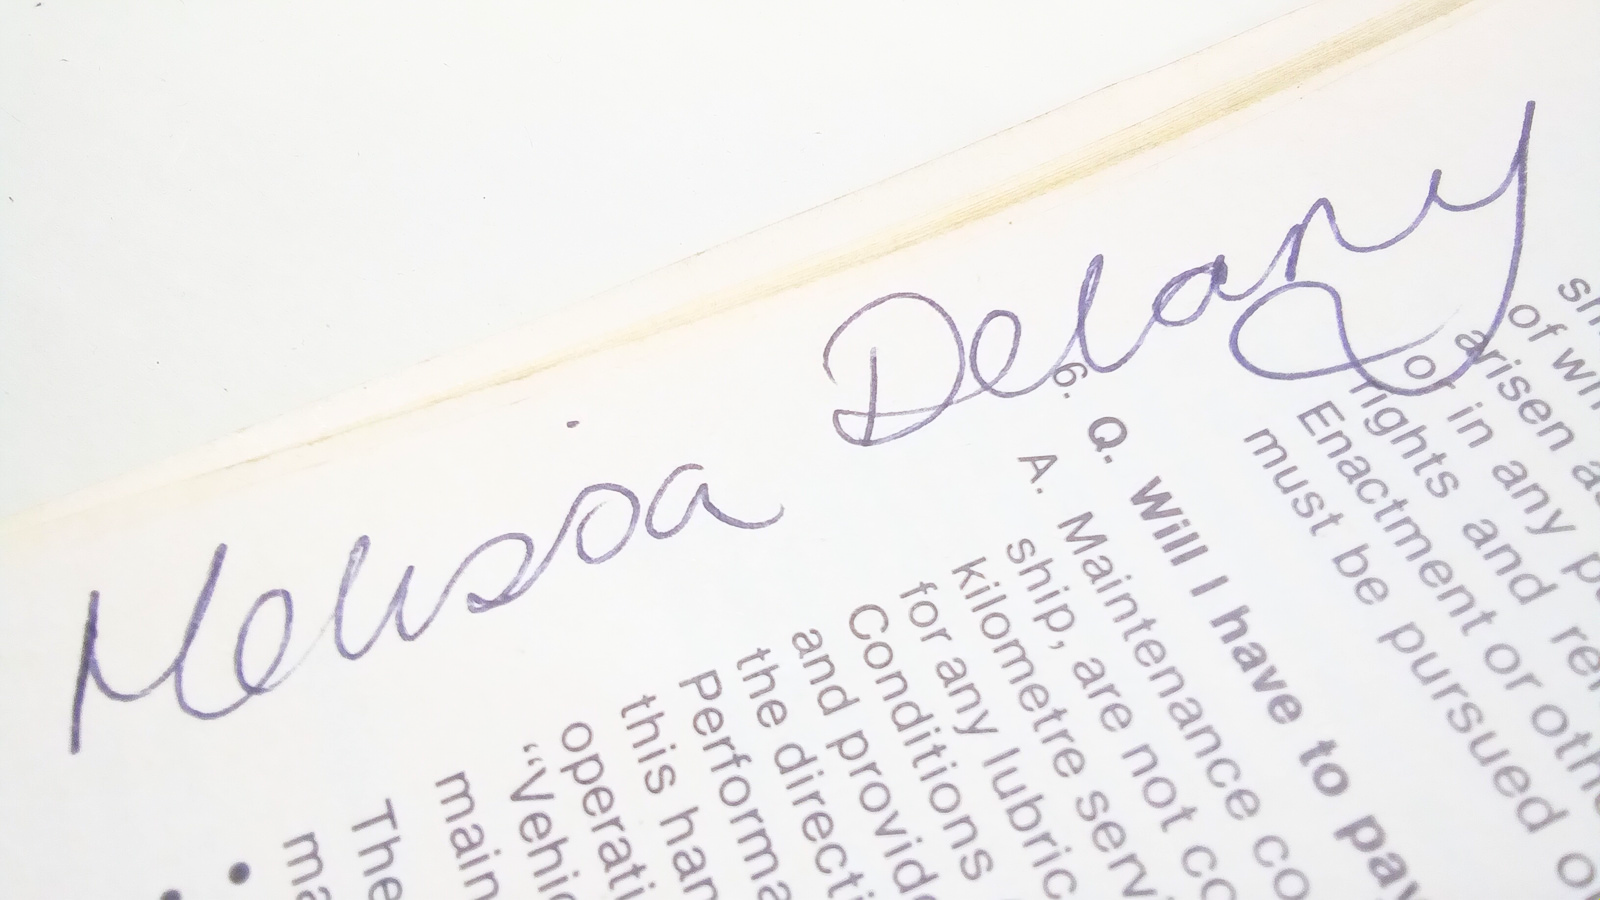 Melissa Delany
of wh
arisen a
or in any p
rights and re
Enactment or oth
must be pursued o
6. Q. Will I have to pay
A. Maintenance co
ship, are not co
kilometre servi
for any lubric
Conditions
and provide
the directi
Performa
this han
operati
"Vehic
main
The
ma